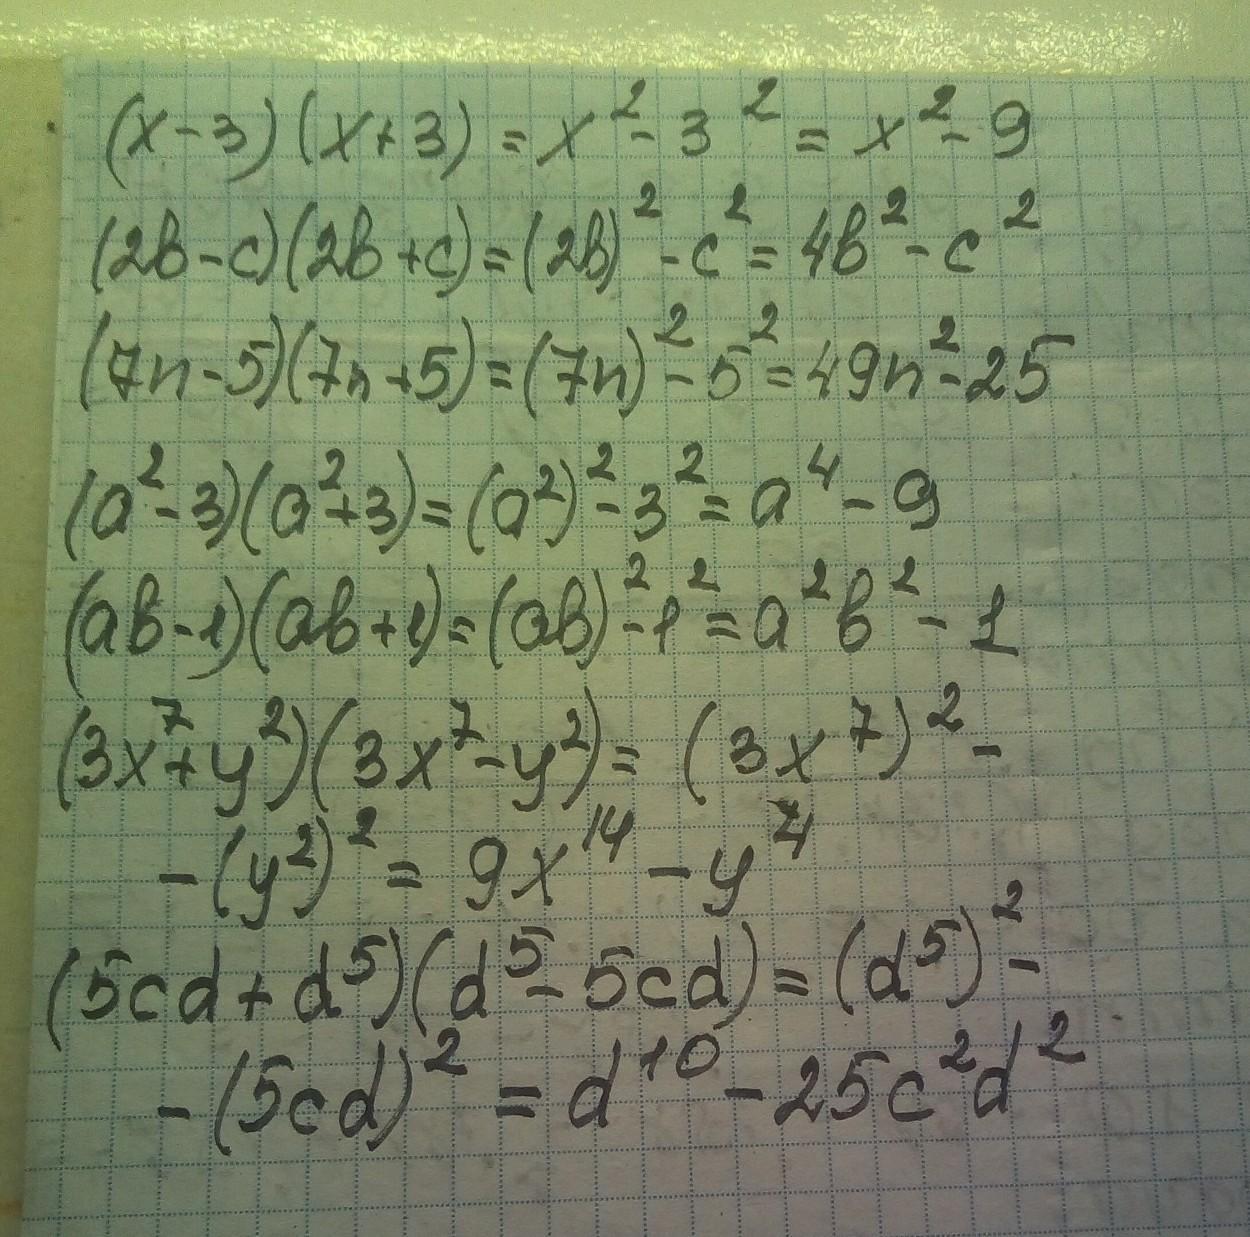 (x-3)(x+3) = x²-3² = x²-9
(2b-c)(2b+c) = (2b)²-c² = 4b²-c²
(7n-5)(7n+5) = (7n)²-5² = 49n²-25
(a²-3)(a²+3) = (a²)²-3² = a⁴-9
(ab-1)(ab+1) = (ab)²-1² = a²b²-1
(3x⁷+y²)(3x⁷-y²) = (3x⁷)²-
-(y²)² = 9x¹⁴-y⁴
(5cd+d⁵)(d⁵-5cd) = (d⁵)²-
-(5cd)² = d¹⁰-25c²d²